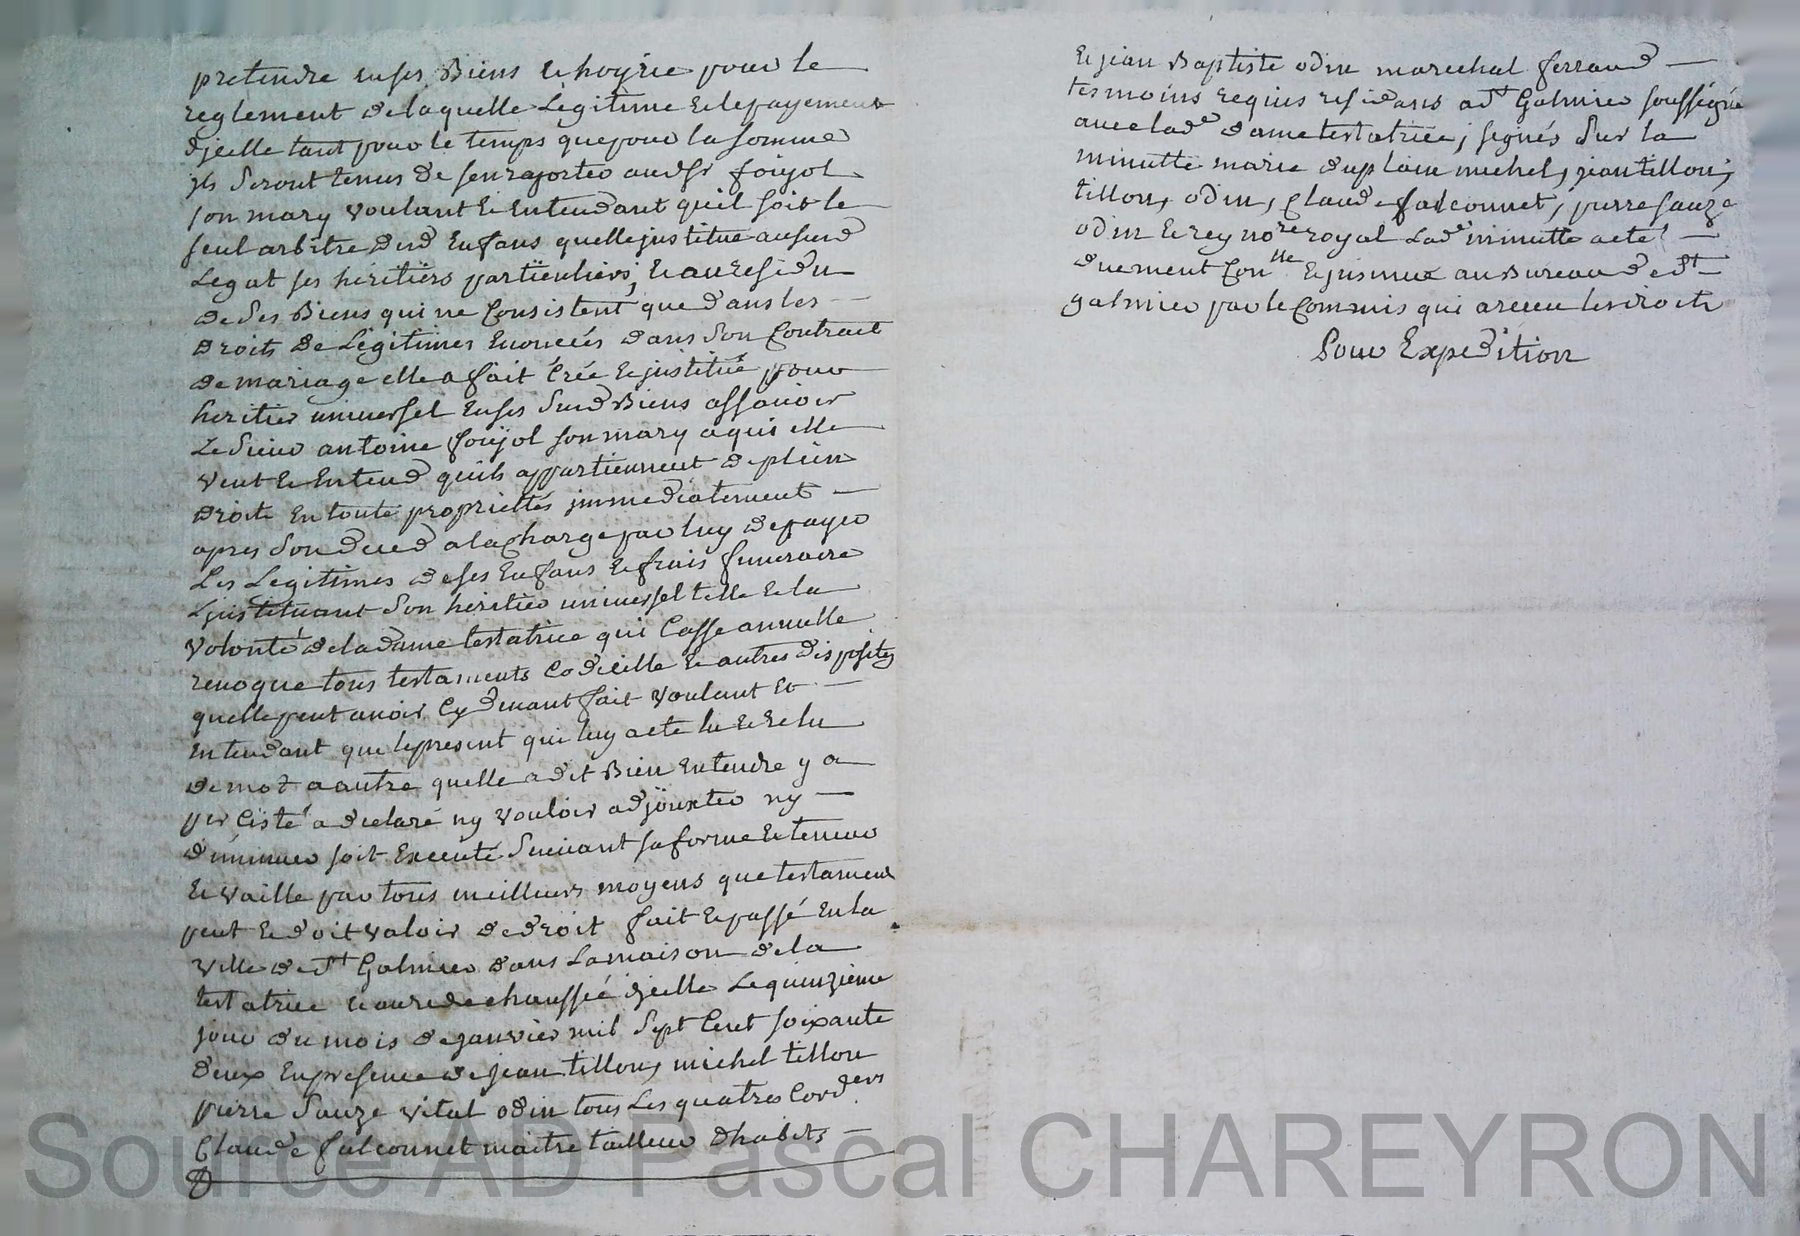 pretendre en ses Biens & hoyrie pour le
reglement de laquelle Légitime & le payement
dycelle tant pour le temps que pour la somme
ils Seront tenus de sen raporter audsr foujol
son mary voulant & Entendant quil soit le
seul arbitre desd Enfans quelle justitue ausurd
Legat ses heritiers particuliers; & au residu
de Ses Biens qui ne Consistent que dans les
Droits de Légitimes Enoncés dans Son Contract
de mariage elle a fait Créé & justitué pour
heritier universel En ses Susd Biens assavoir
Le Sieur antoine foujol son mary a qui elle
veut & Entend quils appartiennent de plein
Droit En toute propriettés jmmediatement
apres Son deced a la Charge par luy de payer
Les Legitimes de ses Enfans & frais funeraire
Ljustituant Son héritier universel telle & la
Volonté de la dame testatrice qui Casse annulle
revoque tous testaments Codicille & autres dispositns
quelle peut avoir Cy devant fait Voulant Et
Entendant que le present qui luy a eté lu & Relu
de mot a autre quelle a dit Bien Entendre y a
perCisté a declaré ny vouloir adjouxter ny
diminuer soit Executé Suivant sa forme & teneur
& vaille par tous meilleurs moyens que testament
peut & doit valoir de droit fait & passé En la
Ville de St Galmier dans La maison de la
testatrice & au rez de chaussée dycelle Le quinzieme
jour du mois de janvier mil Sept Cent soixante
deux En presence de jean tillon, michel tillon
pierre Sauze vital odin tous Les quatres Corders
Claude falconnet maitre tailleur dhabits
& jean Baptiste odin marechal ferrand
tesmoins requis residans audt Galmier soussignés
avec lade dame testatrice; signés Sur la
minutte marie duplain michel, jean tillon;
tillon, odin, Claude falconnet, pierre sauze
odin & rey nore royal Lade minutte a eté
duement Conlle & jnsinué au Bureau de St
galmier par le Commis qui a receu les droits
Pour Expedition
Source AD Pascal CHAREYRON